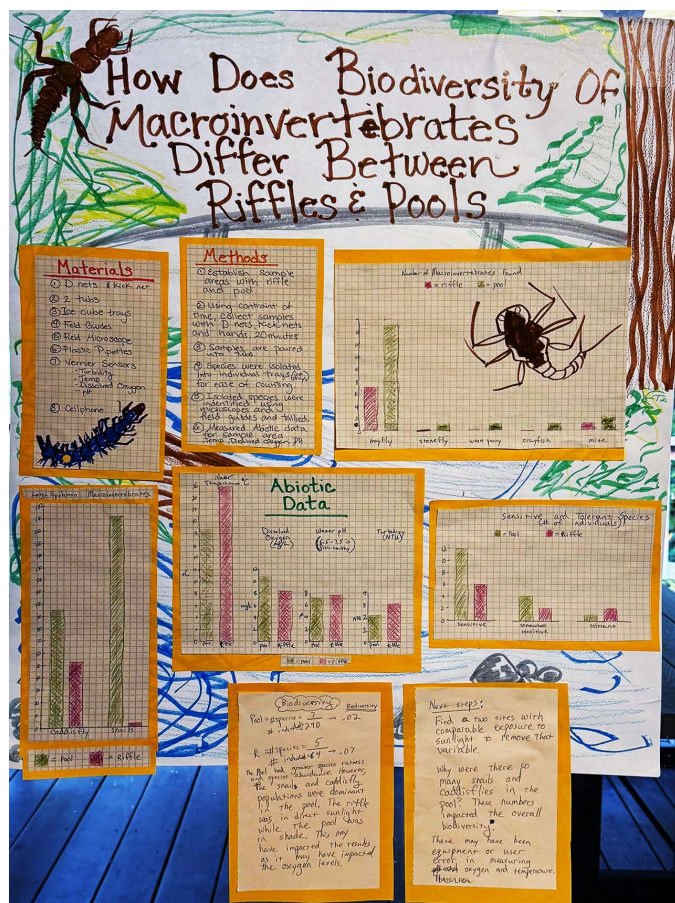 How Does Biodiversity Of
Macroinvertebrates
Differ Between
Riffles & Pools
Materials
① D nets & Kick net
② 2 tubs
③ Ice cube trays
④ Field Guides
⑤ Field Microscope
⑥ Plastic Pipettes
⑦ Vernier Sensors
- Turbidity
- Temp
- Dissolved Oxygen
- pH
⑧ Cellphone
Methods
① Establish sample
areas with riffle
and pool
② Using contraint of
time, collect samples
with D nets, Kick nets
and hands. 20 minutes
③ Samples are poured
into tubs
④ Species were isolated
into individual trays
for ease of counting
⑤ Isolated species were
indentified using
microscopes and
field guides and tallied.
⑥ Measured Abiotic data
for sample area
Temp, Dissolved Oxygen, PH
Number of Macroinvertebrates Found
= riffle = pool
mayfly stonefly water penny crayfish mite
Large Population Macroinvertebrates
caddisfly snails
= Pool = Riffle
Water
Temperature °C
Abiotic
Data
Dissolved
Oxygen
(mg/L)
Water pH
(6.5-7.5 →
fish-healthy)
Turbidity
(NTU)
Pool Riffle Pool Riffle Pool Riffle Pool Riffle
= pool = riffle
Sensitive and Tolerant Species
(# of individuals)
= Pool = Riffle
sensitive somewhat
sensitive tolerant
Biodiversity
Pool = # species = 7 → .02
# individ = 290
R = # species = 5 → .07
# individ = 64
The Pool had greater species richness
and species abundance. However,
the snails and caddisfly
populations were dominant
in the pool. The riffle
was in direct sunlight
while the pool was
in shade. This may
have impacted the results
as it may have impacted
the oxygen levels.
Next steps:
Find a two sites with
comparable exposure to
sunlight to remove that
variable.
Why were there so
many snails and
caddisflies in the
pool? These numbers
impacted the overall
biodiversity.
There may have been
equipment or user
error in measuring
oxygen and temperature.